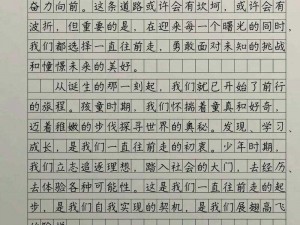 奋力向前。这条道路或许会有坎坷，或许会有
波折，但重要的是，在迎来每一个曙光的同时，
我们都选择一直往前走，勇敢面对未知的挑战
和憧憬未来的美好。
从诞生的那一刻起，我们就已开始了前行
的旅程。孩童时期，我们怀揣着童真和好奇，
迈着稚嫩的步伐探寻世界的奥秘。发现、学习、
成长，是我们一直往前走的初衷。少年时期，
我们立志追逐理想，踏入社会的大门，去经历、
去体验各种可能性。这是我们一直往前走的起
步，是我们自我实现的契机，是我们展翅高飞